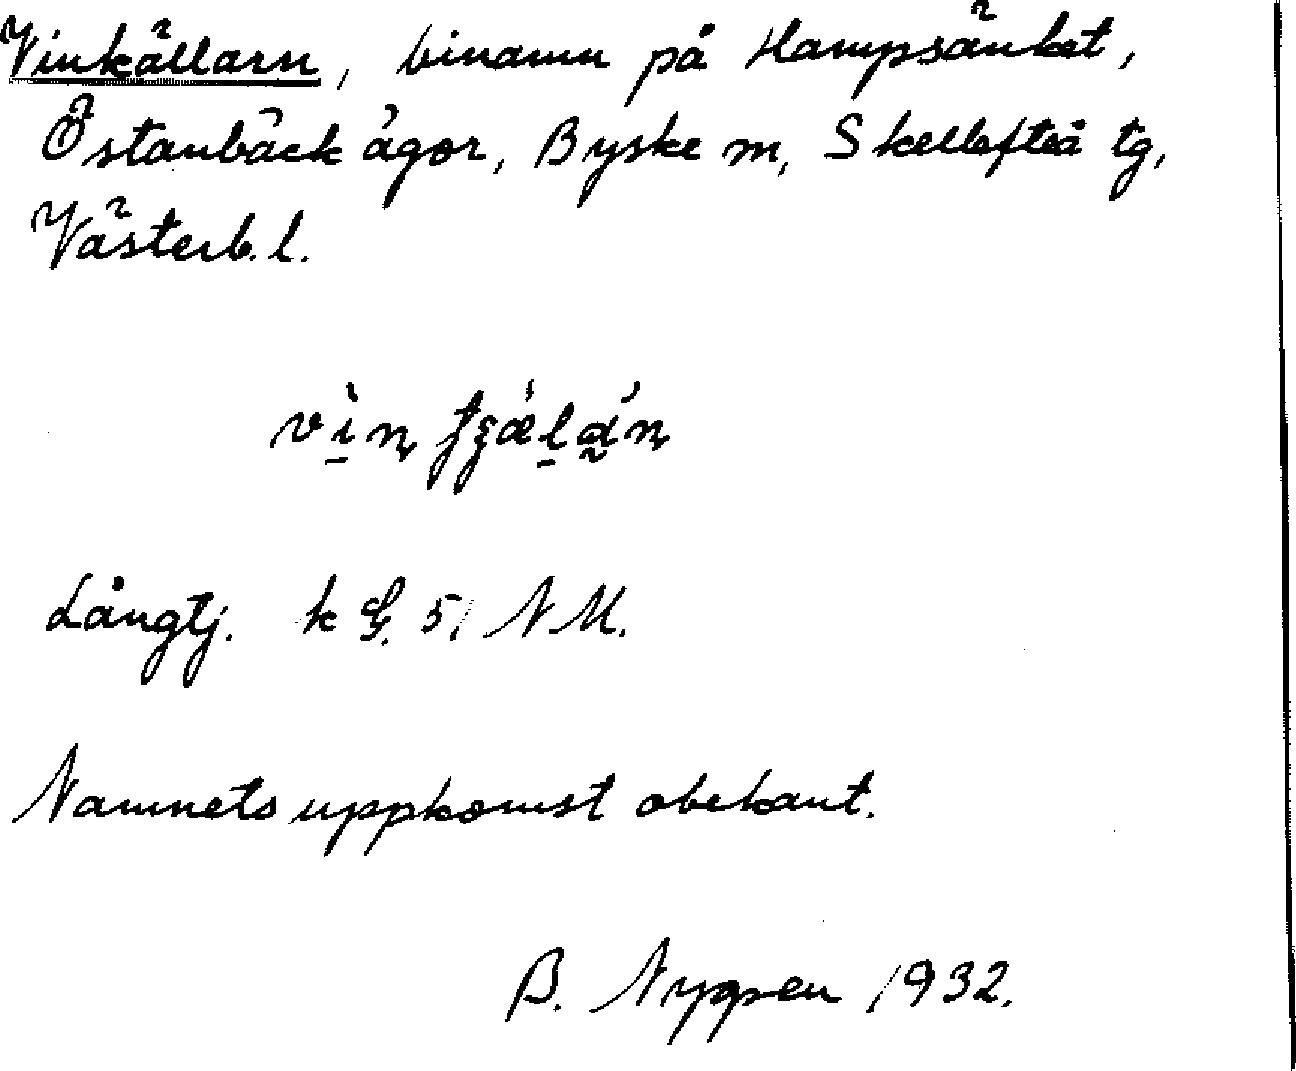 Vinkällarn, binamn på Hampsänket,
Östanbäck ägor, Byske sn, Skellefteå tg,
Västerb. l.
Långtj. k G. 5, NM.
Namnets uppkomst obekant.
B. Nygren 1932.